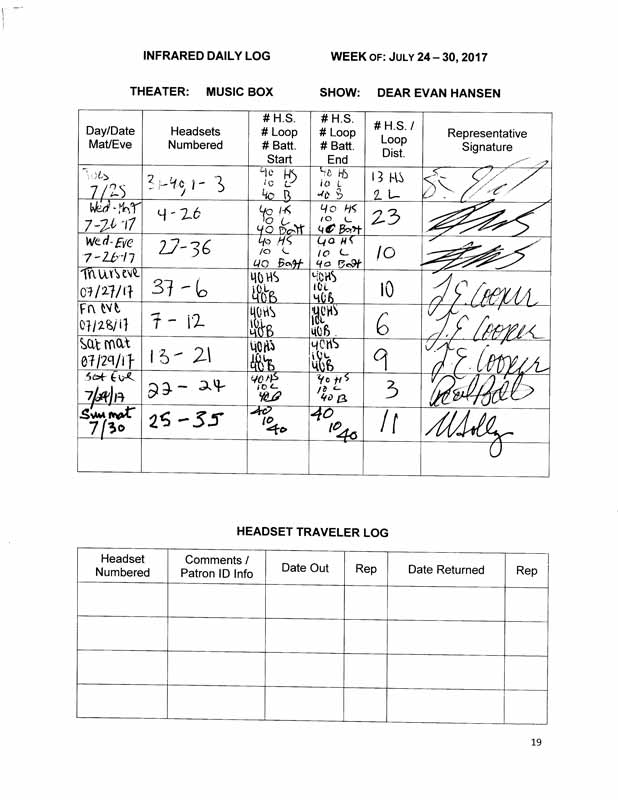 INFRARED DAILY LOG WEEK OF: JULY 24 – 30, 2017
THEATER: MUSIC BOX SHOW: DEAR EVAN HANSEN
Day/Date Mat/Eve | Headsets Numbered | # H.S. # Loop # Batt. Start | # H.S. # Loop # Batt. End | # H.S. / Loop Dist. | Representative Signature
7/25 | 31-40, 1-3 | 40 HS 10 L 40 B | 40 HS 10 L 40 B | 13 HS 2 L
Wed-Mat 7-26-17 | 4-26 | 40 HS 10 L 40 Batt | 40 HS 10 L 40 Batt | 23
Wed-Eve 7-26-17 | 27-36 | 40 HS 10 L 40 Batt | 40 HS 10 L 40 Batt | 10
Thurs eve 07/27/17 | 37-6 | 40HS 10L 40B | 40HS 10L 40B | 10 | J.E. Cooper
Fri eve 07/28/17 | 7-12 | 40HS 10L 40B | 40HS 10L 40B | 6 | J.E. Cooper
Sat mat 07/29/17 | 13-21 | 40HS 10L 40B | 40HS 10L 40B | 9 | J.E. Cooper
Sat Eve 7/29/17 | 22-24 | 40 HS 10 L | 40 HS 10 L 40 B | 3
Sun mat 7/30 | 25-35 | 40 10 40 | 40 10 40 | 11
HEADSET TRAVELER LOG
Headset Numbered | Comments / Patron ID Info | Date Out | Rep | Date Returned | Rep
19